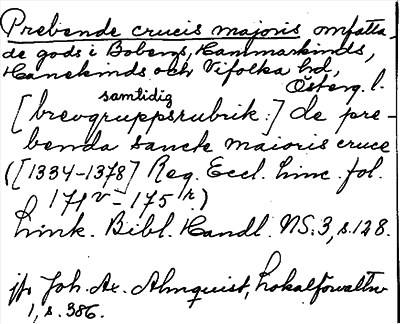 Prebende crucis majoris omfatta-
de gods i Bobergs, Hammarkinds,
Hanekinds och Vifolka hd,
Österg. l.
samtidig
[brevgruppsrubrik:] de pre-
benda sancte maioris cruce
([1334-1378] Reg. Eccl. Linc. fol.
171 v - 175 r.)
Link. Bibl. Handl. NS. 3, s. 128.
jfr Joh. Ax. Almquist, Lokalförvaltn
1, s. 386.